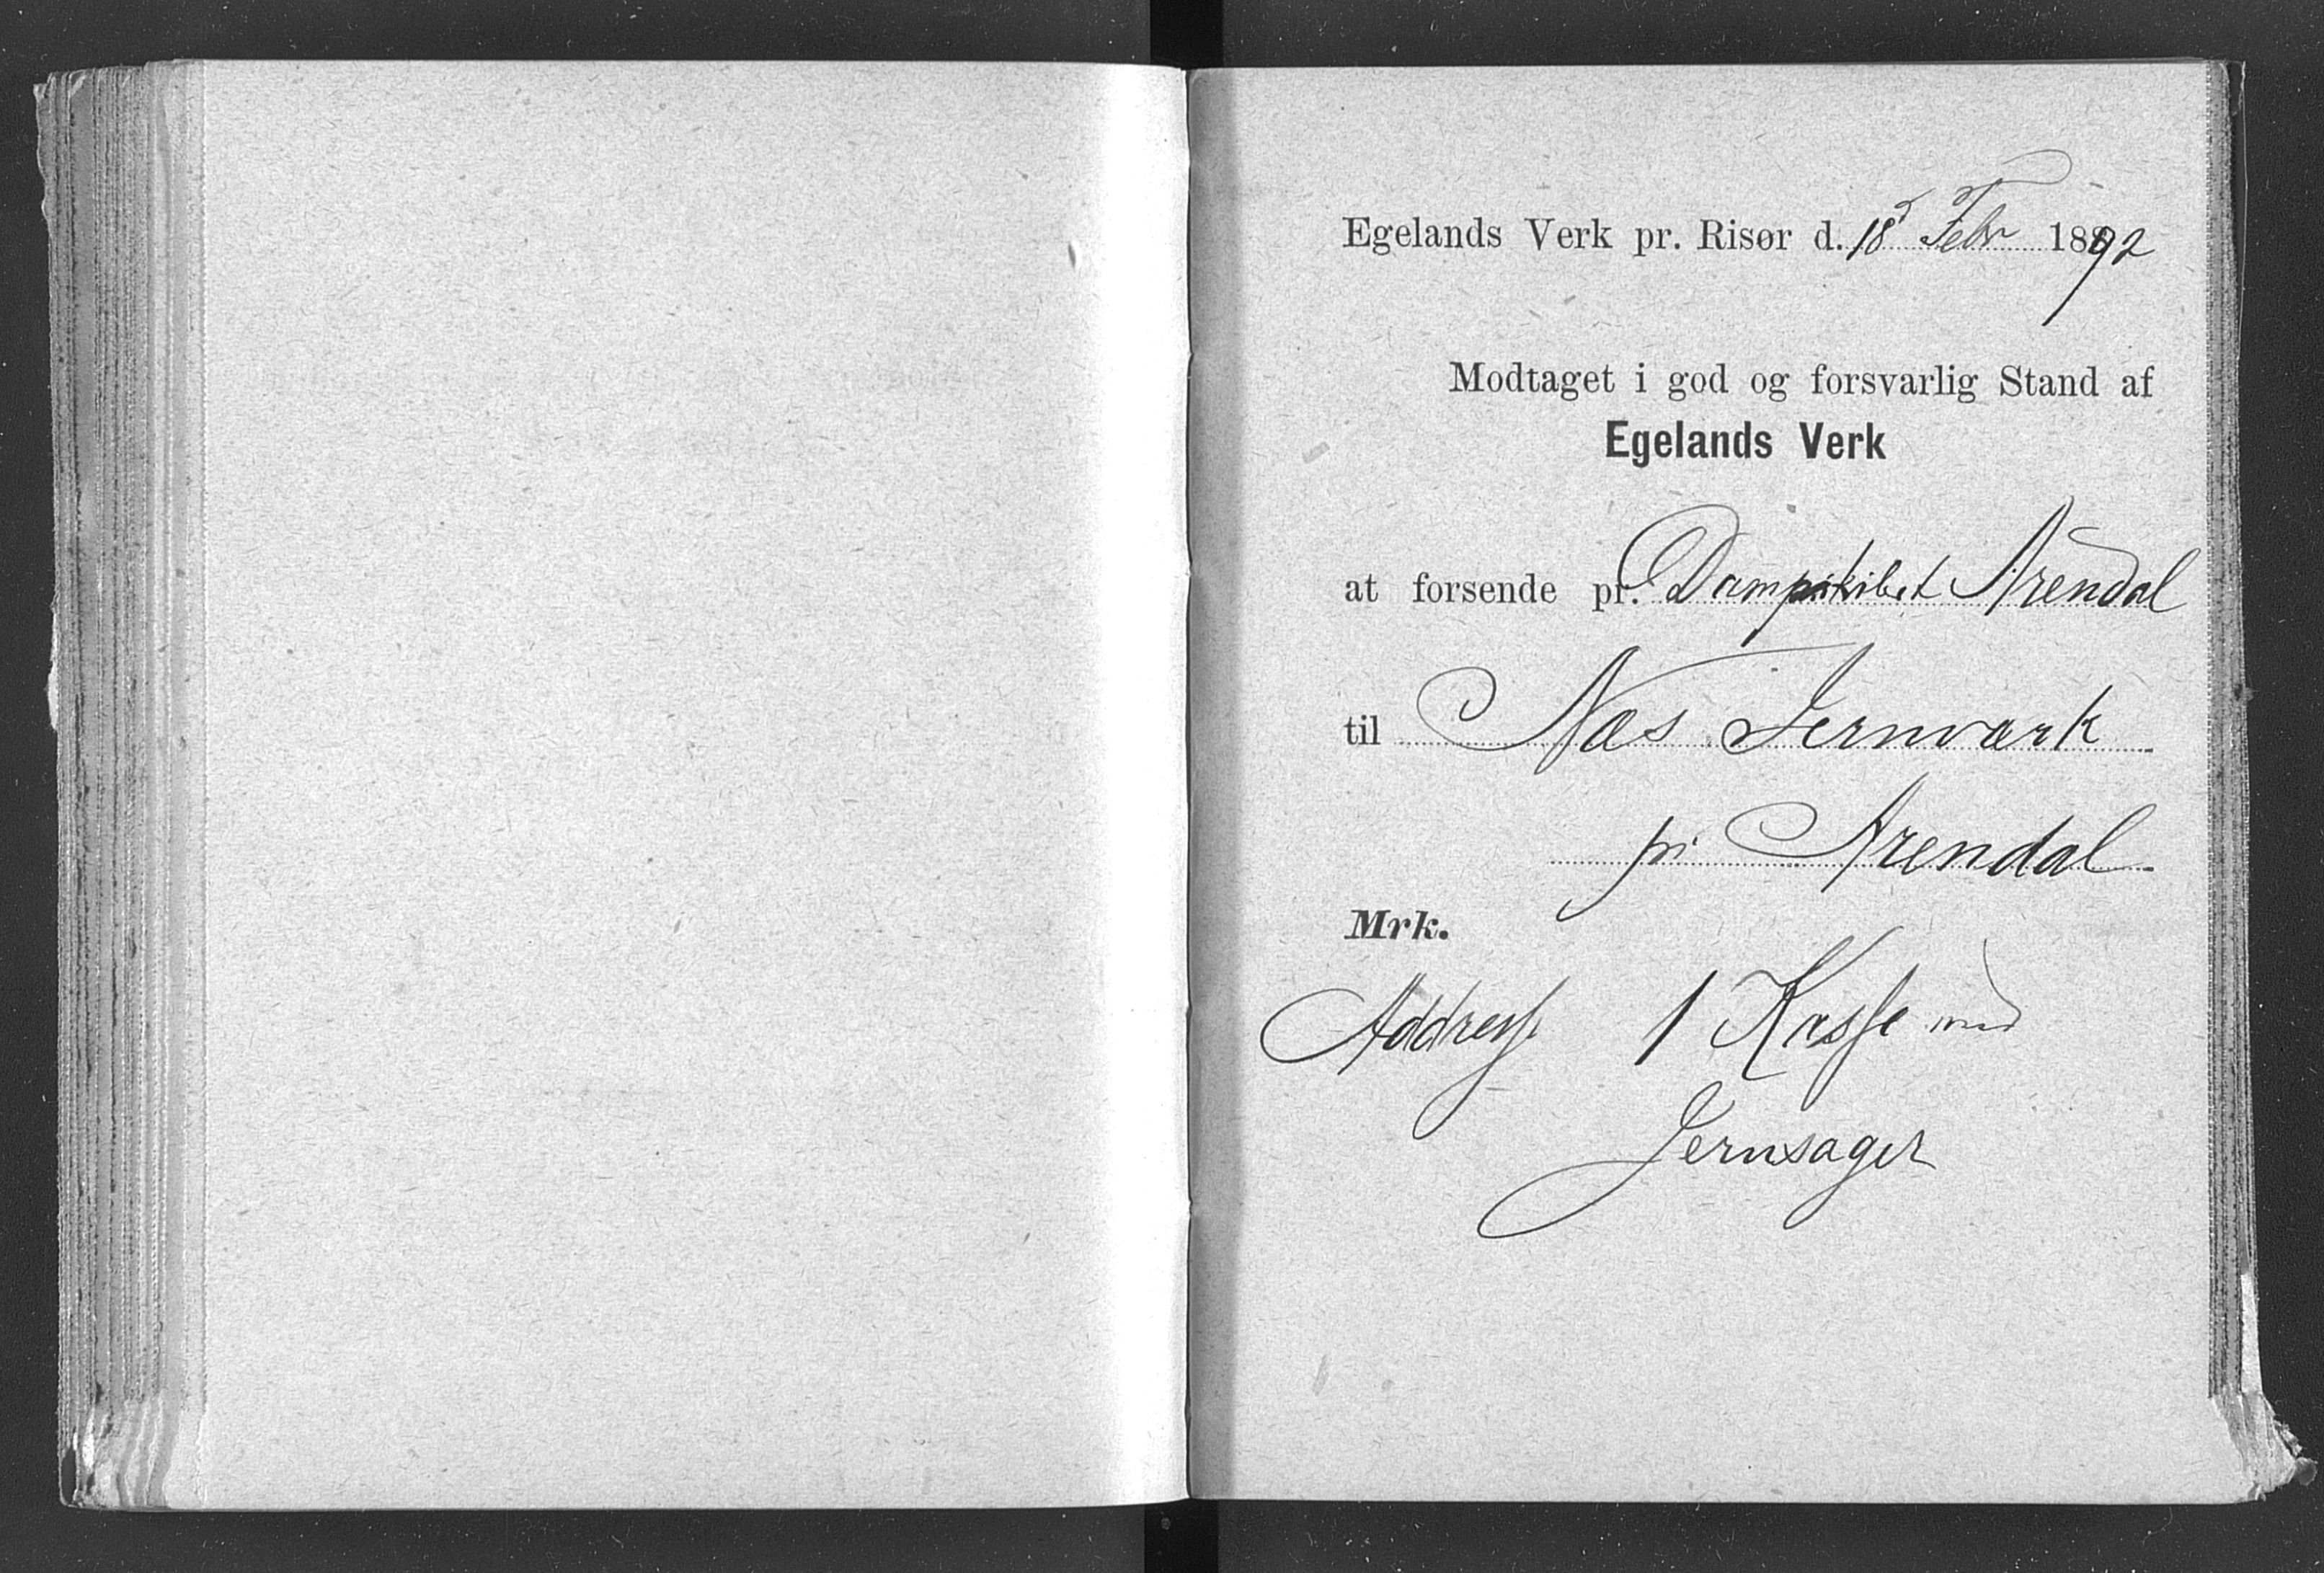 Egelands Verk pr. Risør d. 18d Febr 1892
Modtaget i god og forsvarlig Stand af
Egelands Verk
at forsende pr. Dampskibet Arendal
til Næs Jernværk
pr Arendal
Mrk.
Addresse 1 Kasse med
Jernsager